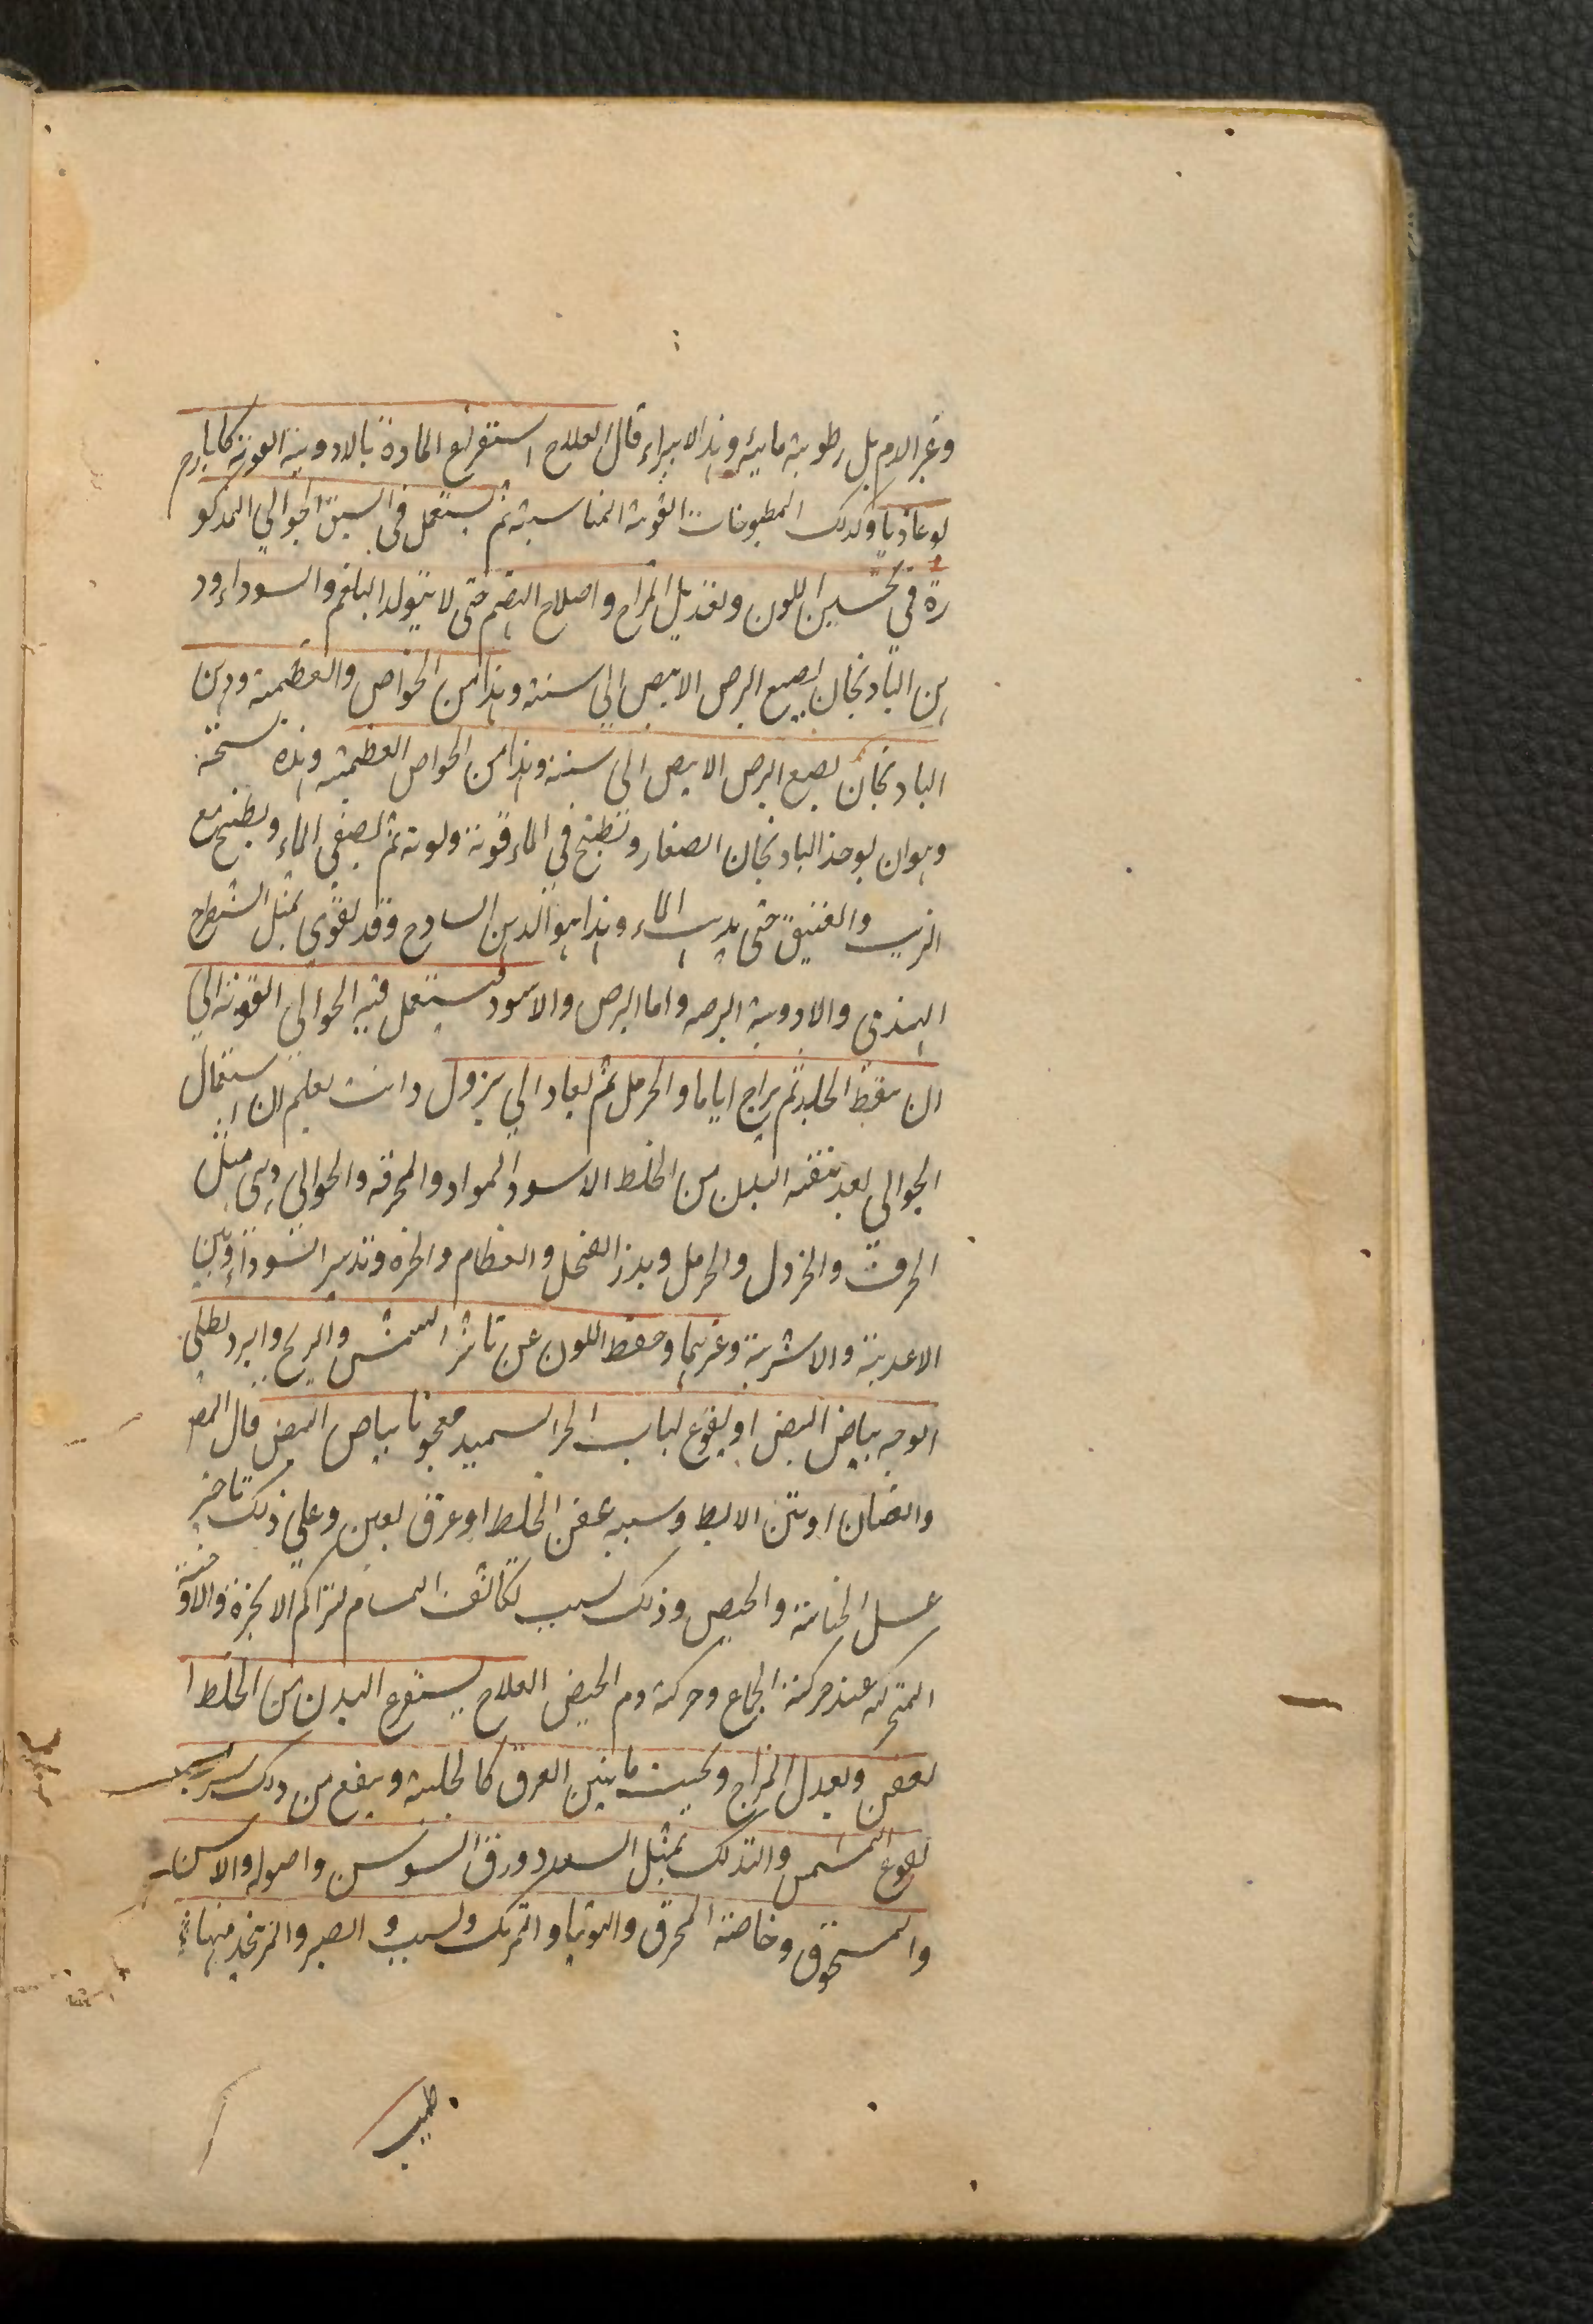 وغير الام بل رطوبة مائية وهذا لا يبراء قال العلاج استفراغ المادة بالادوية القوية كايارج
لوغاذيا وكذلك المطبوخات القوية المناسبة ثم يستعمل في السبق الجوالي المذكو
رة في تحسين اللون وتعديل المزاج واصلاح الهضم حتى لا يتولد البلغم والسوداء ود
هن البادنجان يصبع البرص الابيض الى سنة وهذا من الخواص والعظيمة ودهن
البادنجان يصبع البرص الابيض الى سنة وهذا من الخواص العظيمة وهذه نسخته
وهوان يوخذ البادنجان الصغار وتطبخ في الماء قوته ولونه ثم يصفى الماء ويطبخ مع
الزيت والعتيق حتى يذهب الماء وهذا هو الدهن السادج وقد يقوى بمثل الشيطرج
الهندى والادوية البرصه واما البرص والاسود فيستعمل فيه الجوالى القوية الى
ان يسقط الجلد ثم يراح اياما والحرمل ثم يعاد الي يزول وانت تعلم ان استعمال
الجوالي بعد تنقية البدن من الخلط الاسود المواد والمحرقه والجوالي هى مثل
الحرف والخردل والحرمل وبذر الفجل والعظام والخزف وتدبير السوداء وبين
الاغدية والاشربة وغيرهما وحفظ اللون عن تاثير الشمس والريح والبرد يطلى
الوجه ببياض البيض او ينقوع لباب الخبز السميد معجونا ببياض البيض قال المص
والصنان او نتن الابط وسببه عفن الخلط او عرق لعين وعلى ذلك تاخير
غسل الجنابة والحيض وذلك بسبب تكاثف المسام لتراكم الابخرة والاوخنة
المتحركه عند حركة الجماع وحركة دم الحيض العلاج يستفرغ البدن من الخلط ا
لعفن ويعدل المزاج ويجنب ما ينتن العرق كالحلبة وينفع من ذلك شراب
نقوع المشمش والتدلك بمثل السعد وورق السوسن واصوله والاس
والمسحوق وخاصة المحرق والتوتيا والمرتك والشب والصبر والمر يتخذ منها
طبيب